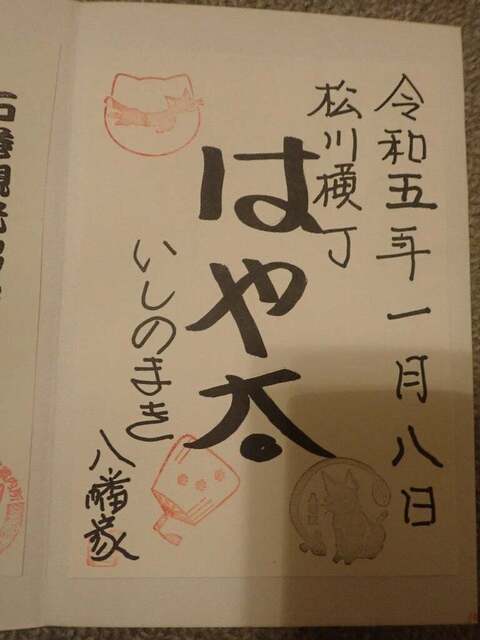 令和五年一月八日
松川横丁
はや太
いしのまき
八幡家
石巻観光